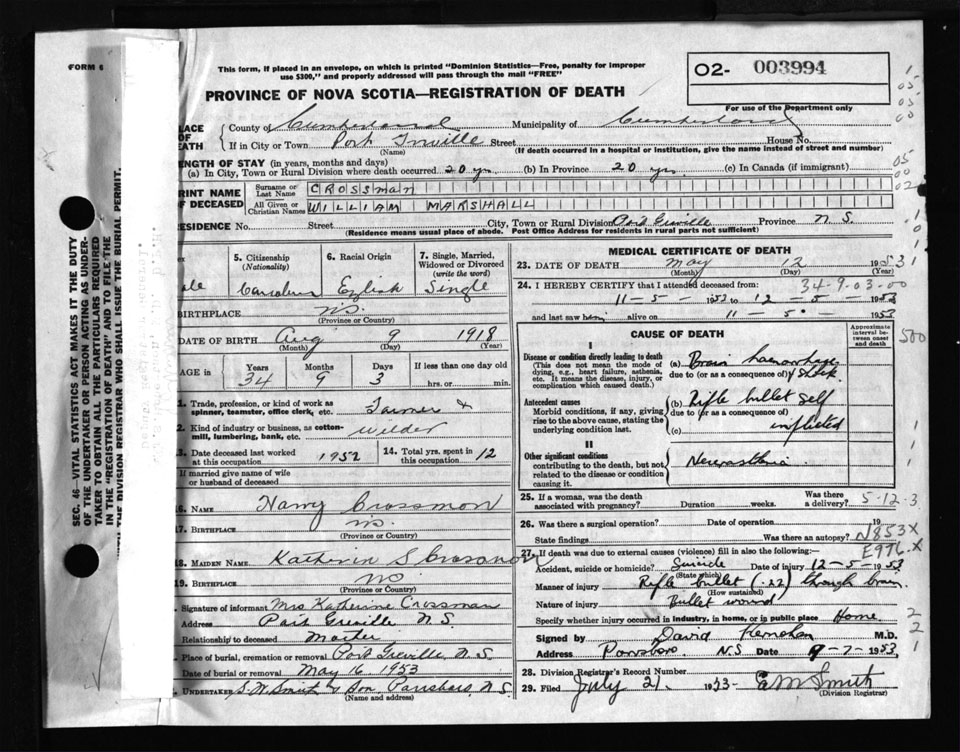 FORM 6
This form, if placed in an envelope, on which is printed "Dominion Statistics—Free, penalty for improper
use $300," and properly addressed will pass through the mail "FREE"
O2- 003994
PROVINCE OF NOVA SCOTIA—REGISTRATION OF DEATH
For use of the Department only
LACE OF EATH
County of Cumberland Municipality of Cumberland
If in City or Town Port Street House No.
(Name) (If death occurred in a hospital or institution, give the name instead of street and number)
ENGTH OF STAY (in years, months and days)
(a) In City, Town or Rural Division where death occurred 20 yrs. (b) In Province 20 yrs (c) In Canada (if immigrant)
RINT NAME OF DECEASED
Surname or Last Name CROSSMAN
All Given or Christian Names WILLIAM MARSHALL
ESIDENCE No. Street City, Town or Rural Division Port Greville Province N.S.
(Residence means usual place of abode. Post Office Address for residents in rural parts not sufficient)
5. Citizenship (Nationality) 6. Racial Origin 7. Single, Married, Widowed or Divorced (write the word)
ale Canadian English Single
BIRTHPLACE NS.
(Province or Country)
DATE OF BIRTH Aug 9 1918
(Month) (Day) (Year)
AGE in Years Months Days If less than one day old
34 9 3 hrs. or min.
1. Trade, profession, or kind of work as
spinner, teamster, office clerk, etc. Farmer &
2. Kind of industry or business, as cotton-
mill, lumbering, bank, etc. Welder
3. Date deceased last worked at this occupation 1952 14. Total yrs. spent in this occupation 12
If married give name of wife
or husband of deceased
16. NAME Harry Crossman
17. BIRTHPLACE NS.
(Province or Country)
18. MAIDEN NAME Katherin S
19. BIRTHPLACE NS
(Province or Country)
Signature of informant Mrs Katherine Crossman
Address Port Greville N.S.
Relationship to deceased Mother
Place of burial, cremation or removal Port Greville, N.S
Date of burial or removal May 16 1953
UNDERTAKER S.W. Smith & Son, Parrsboro, N.S
(Name and address)
MEDICAL CERTIFICATE OF DEATH
23. DATE OF DEATH May 12 1953
(Month) (Day) (Year)
24. I HEREBY CERTIFY that I attended deceased from: 34-9-03-00
11-5-1953 to 12-5-1953
and last saw him alive on 11-5-1953
CAUSE OF DEATH
Approximate interval between onset and death
I
Disease or condition directly leading to death
(This does not mean the mode of
dying, e.g., heart failure, asthenia,
etc. It means the disease, injury, or
complication which caused death.)
(a) Brain haemorrhage
due to (or as a consequence of) & Shock.
Antecedent causes
Morbid conditions, if any, giving
rise to the above cause, stating the
underlying condition last.
(b) Rifle bullet self
due to (or as a consequence of)
(c) inflicted
II
Other significant conditions
contributing to the death, but not
related to the disease or condition
causing it.
Neurasthenia
25. If a woman, was the death associated with pregnancy? Duration weeks. Was there a delivery? 5-12-3
26. Was there a surgical operation? Date of operation 19
State findings Was there an autopsy? N853X
E976.X
27. If death was due to external causes (violence) fill in also the following:
Accident, suicide or homicide? Suicide Date of injury 12-5-1953
(State which)
Manner of injury Rifle bullet (.22) through brain.
(How sustained)
Nature of injury Bullet wound
Specify whether injury occurred in industry, in home, or in public place Home
Signed by David Kernohan M.D.
Address Parrsboro N.S Date 9-7-1953
28. Division Registrar's Record Number
29. Filed July 21 1953 E M Smith
(Division Registrar)
SEC. 46—VITAL STATISTICS ACT MAKES IT THE DUTY
OF THE UNDERTAKER OR PERSON ACTING AS UNDER-
TAKER TO OBTAIN ALL THE PARTICULARS REQUIRED
IN THE "REGISTRATION OF DEATH" AND TO FILE THE
THE DIVISION REGISTRAR WHO SHALL ISSUE THE BURIAL PERMIT.